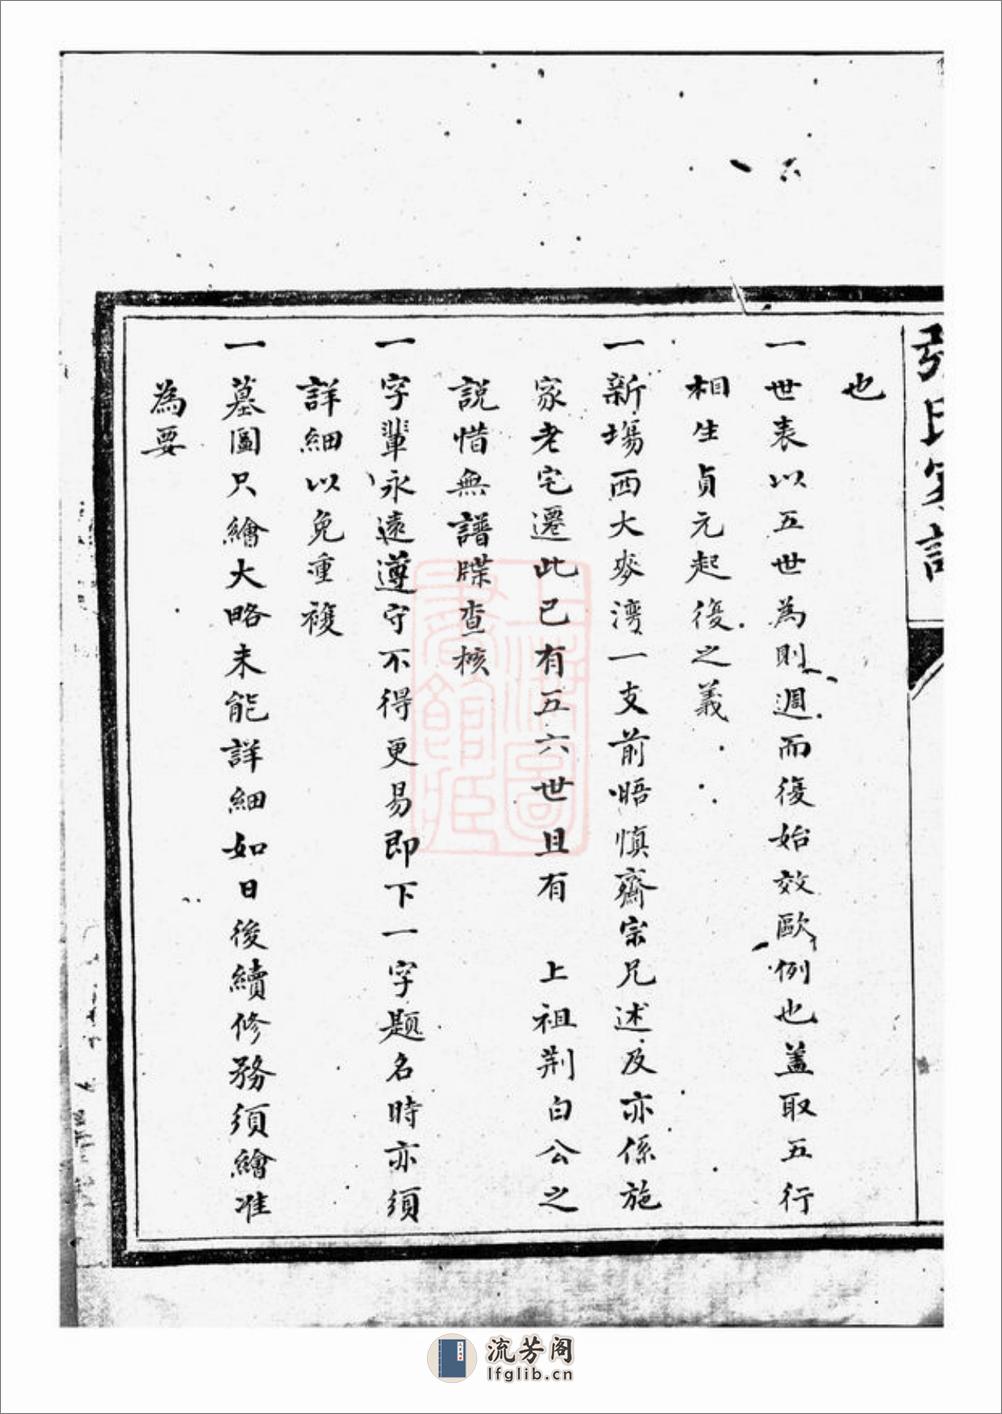 張氏家譜
也
一世表以五世為則週而復始效歐例也蓋取五行
相生貞元起復之義
一新塲西大麥湾一支前晤慎齋宗兄述及亦係施
家老宅遷此已有五六世且有 上祖荆白公之
説惜無譜牒查核
一字輩永遠遵守不得更易即下一字題名時亦須
詳細以免重複
一墓圖只繪大略未能詳細如日後續修務須繪准
為要
上海圖書館藏
流芳阁
lfglib.cn